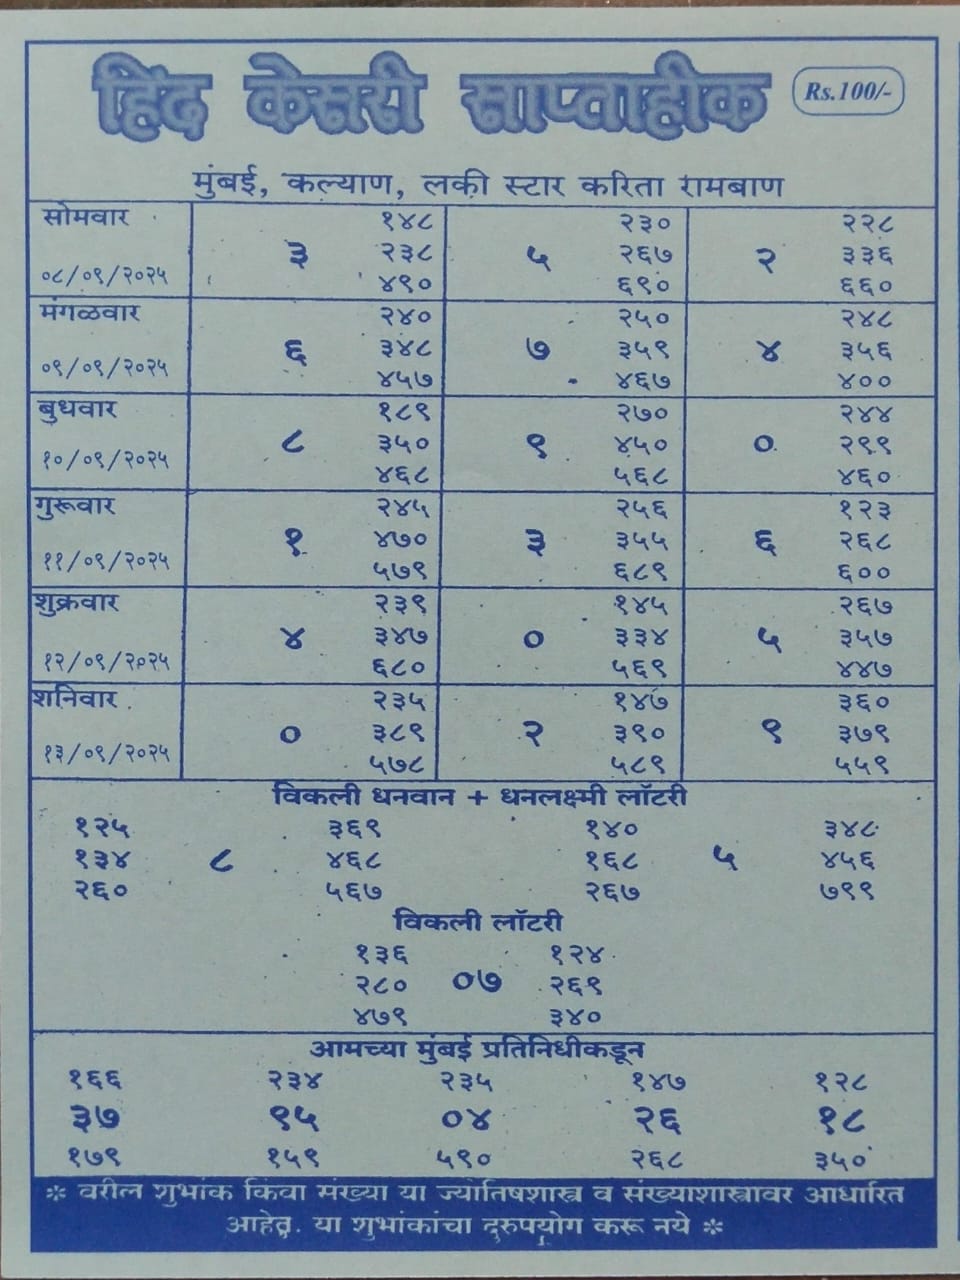 हिंद केसरी साप्ताहीक Rs.100/-
मुंबई, कल्याण, लकी स्टार करिता रामबाण
सोमवार १४८ २३० २२८
३ २३८ ५ २६७ २ ३३६
०८/०९/२०२५ ४९० ६९० ६६०
मंगळवार २४० २५० २४८
६ ३४८ ७ ३५९ ४ ३५६
०९/०९/२०२५ ४५७ ४६७ ४००
बुधवार १८९ २७० २४४
८ ३५० ९ ४५० ० २९९
१०/०९/२०२५ ४६८ ५६८ ४६०
गुरूवार २४५ २५६ १२३
१ ४७० ३ ३५५ ६ २६८
११/०९/२०२५ ५७९ ६८९ ६००
शुक्रवार २३९ १४५ २६७
४ ३४७ ० ३३४ ५ ३५७
१२/०९/२०२५ ६८० ५६९ ४४७
शनिवार २३५ १४७ ३६०
० ३८९ २ ३९० ९ ३७९
१३/०९/२०२५ ५७८ ५८९ ५५९
विकली धनवान + धनलक्ष्मी लॉटरी
१२५ ३६९ १४० ३४८
१३४ ८ ४६८ १६८ ५ ४५६
२६० ५६७ २६७ ७९९
विकली लॉटरी
१३६ १२४
२८० ०७ २६९
४७९ ३४०
आमच्या मुंबई प्रतिनिधीकडून
१६६ २३४ २३५ १४७ १२८
३७ ९५ ०४ २६ १८
१७९ १५९ ५९० २६८ ३५०
❇ वरील शुभांक किंवा संख्या या ज्योतिषशास्त्र व संख्याशास्त्रावर आधारित
आहेत. या शुभांकांचा दुरुपयोग करू नये ❇